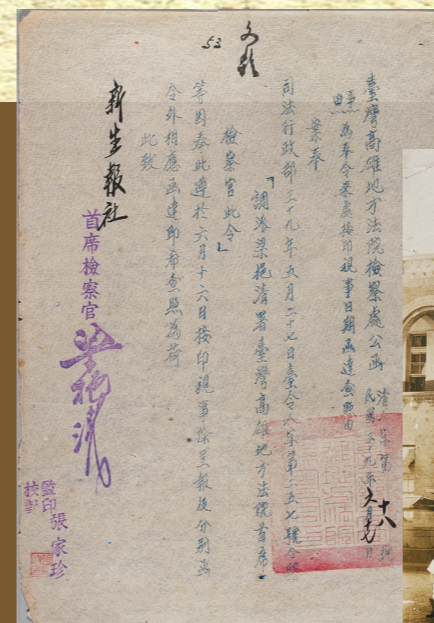 臺灣高雄地方法院檢察處公函
民國三十九年六月十七日
為奉令來處接印視事日期函達查照由
案奉
司法行政部三十九年五月二十七日
「調派梁挹清署臺灣高雄地方法院首席
檢察官此令」
等因奉此遵於六月十六日接印視事除呈報及分別函
令外相應函達即希查照為荷
此致
新生報社
首席檢察官 梁挹清
監印 張家珍
校對
53